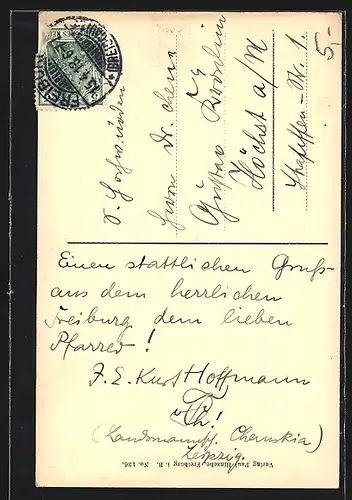 5-
FREIBURG
S. Hochwürden
Herrn Dr. chem.
Gustav
Höchst a/M
Einen stattlichen Gruß
aus dem herrlichen
Freiburg dem lieben
Pfarrer!
F. E. Kurt Hoffmann
(Landsmannsch. Cheruskia)
Leipzig.
Verlag Paul Hinsche, Freiburg i. B. No. 136.